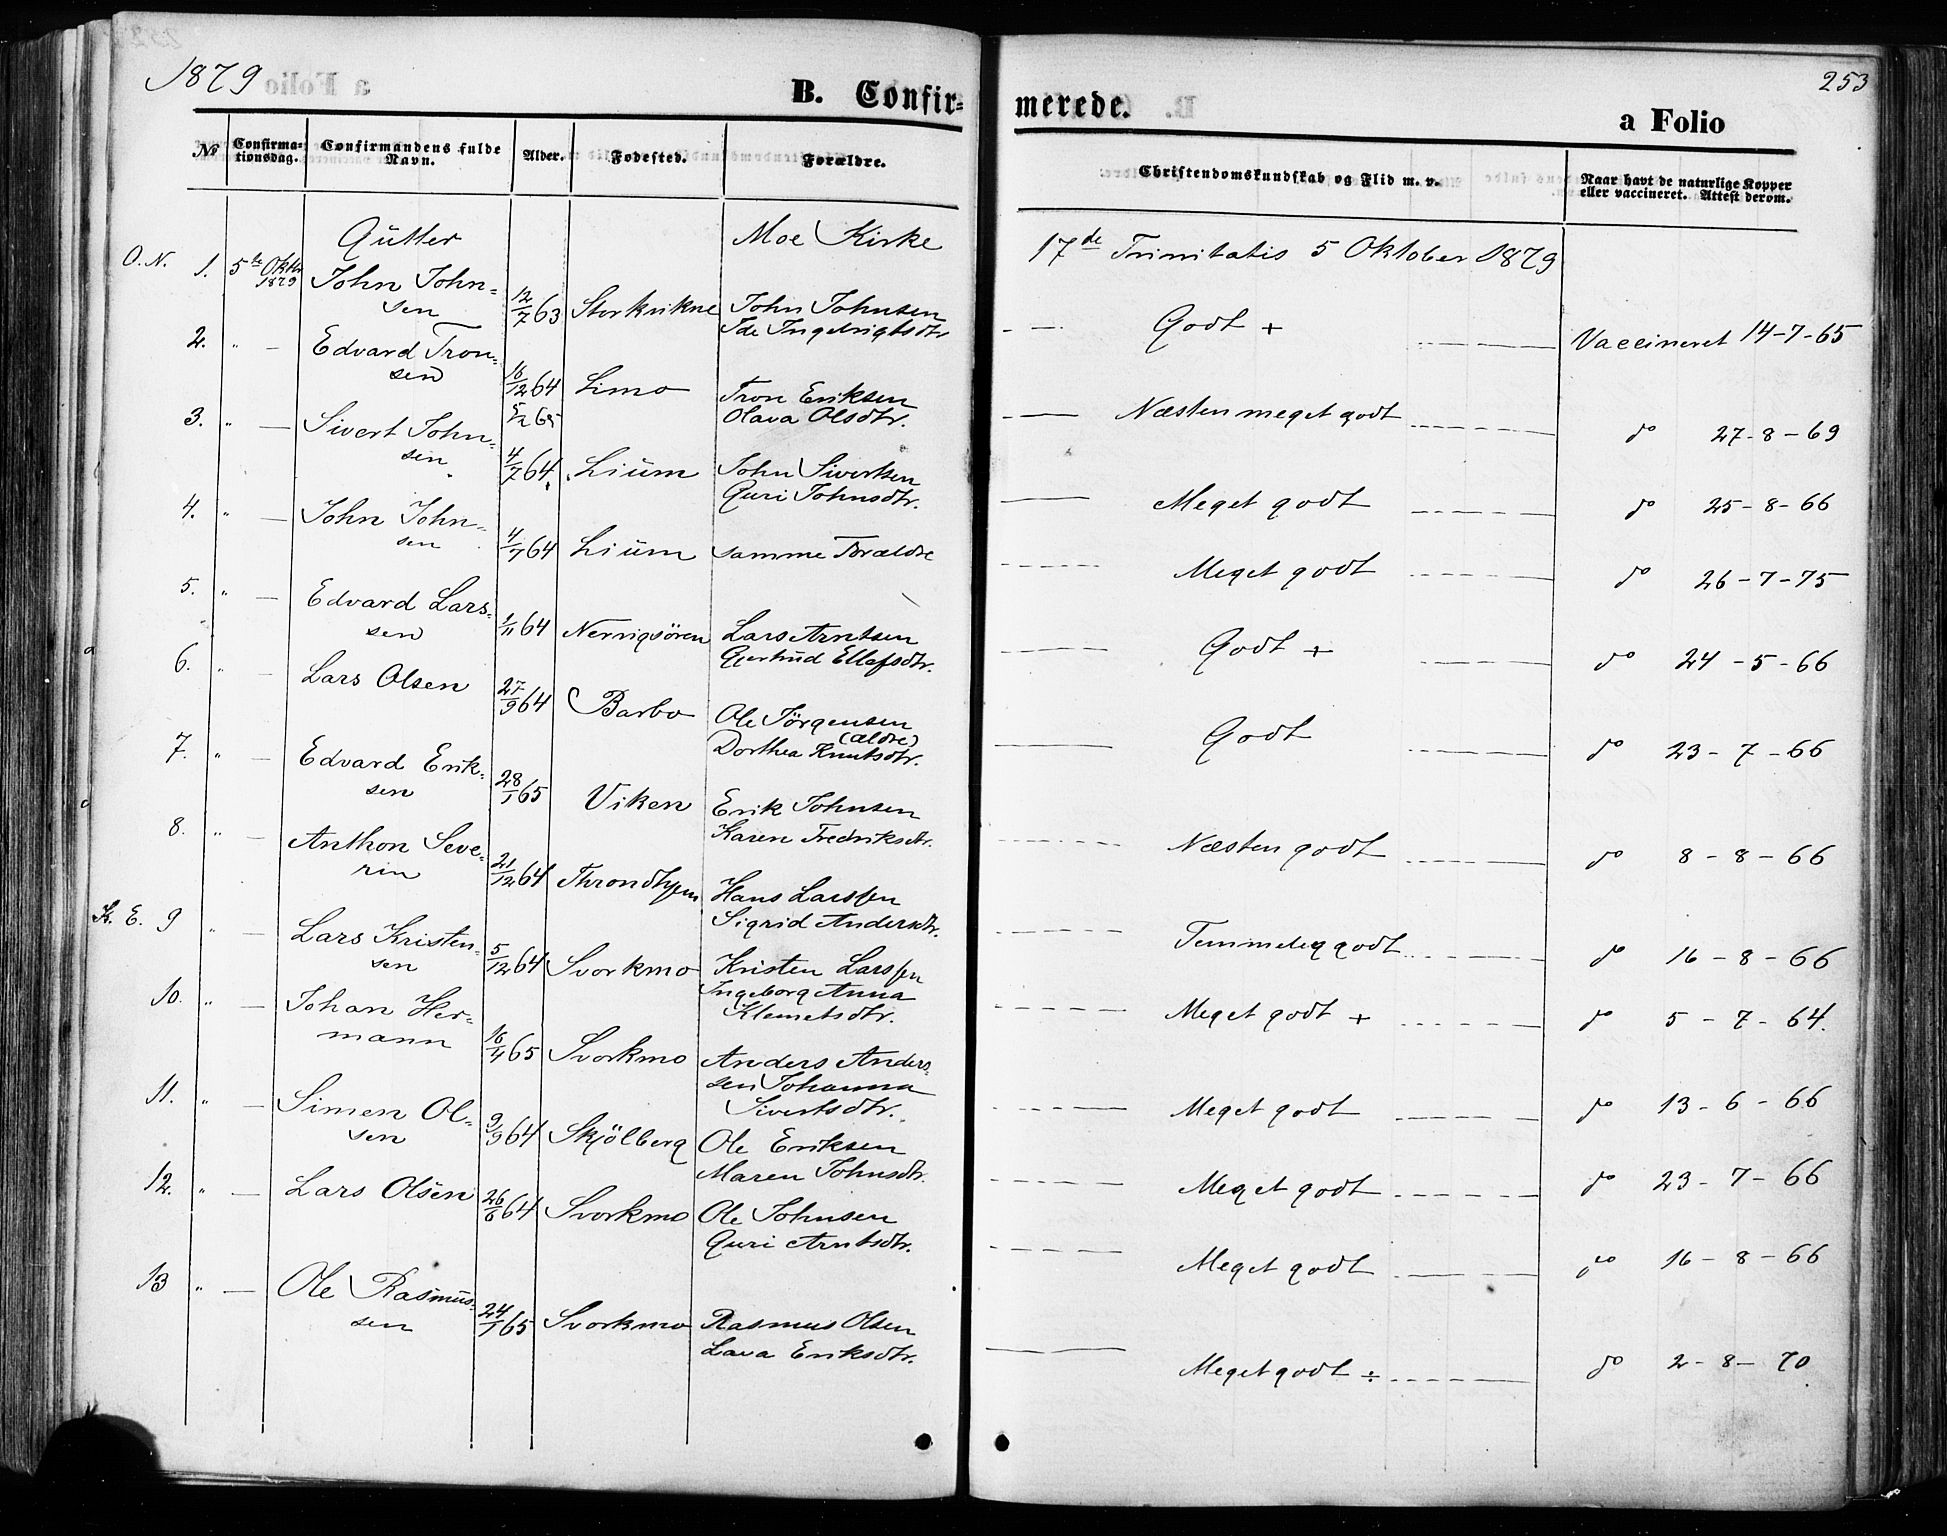 1879
253
B. Confir-
merede.
a Folio
№
Confirma-
tionsdag.
Confirmandens fulde
Navn.
Alder.
Fødested.
Forældre.
Christendomskundskab og Flid m. v.
Naar havt de naturlige Kopper
eller vaccineret. Attest derom.
Gütter
Moe Kirke
17de Trinitatis 5 Oktober 1879
O. N. 1. 5te Oktbr 1879 John John-
sen 12/7 63 Storkvikne John Johnsen
Ide Ingebrigtsdtr
Godt +
Vaccineret 14-7-65
2. " — Edvard Tron-
sen 16/12 64 Limo Tron Eriksen
5/2 65 Olava Olsdtr.
Næsten meget godt
do 27-8-69
3. " — Sivert John-
sen 4/7 64 Liüm John Sivertsen
Guri Johnsdtr.
Meget godt
do 25-8-66
4. " — John John-
sen 4/7 64 Liüm samme Forældre
Meget godt
do 26-7-75
5. " — Edvard Lars-
sen 1/11 64 Nervigsören Lars Arntsen
Gjertrud Ellefsdtr.
Godt +
do 24-5-66
6. " — Lars Olsen
27/9 64 Barbo Ole Jörgensen
(ældre)
Dorthea Knutsdtr.
Godt
do 23-7-66
7. " — Edvard Erik-
sen 28/1 65 Viken Erik Johnsen
Karen Fredriksdtr.
Næsten godt
do 8-8-66
8. " — Anthon Seve-
rin 21/12 64 Throndhjem Hans Larssen
Sigrid Andersdtr.
Temmelig godt
do 16-8-66
K. E. 9 " — Lars Kristen-
sen 5/12 64 Svorkmo Kristen Larssen
Ingeborg Anna
Klemetsdtr.
Meget godt +
do 5-7-64.
10. " — Johan Her-
mann 16/4 65 Svorkmo Anders Anders-
sen Johanna
Sivertsdtr.
Meget godt
do 13-6-66
11. " — Simen Ol-
sen 9/9 64 Skjölberg Ole Eriksen
Maren Johnsdtr.
Meget godt
do 23-7-66
12. " — Lars Olsen 26/6 64 Svorkmo Ole Johnsen
Guri Arntsdtr.
Meget godt
do 16-8-66
13 " — Ole Rasmus-
sen 24/1 65 Svorkmo Rasmus Olsen
Lava Eriksdtr.
Meget godt ÷
do 2-8-70